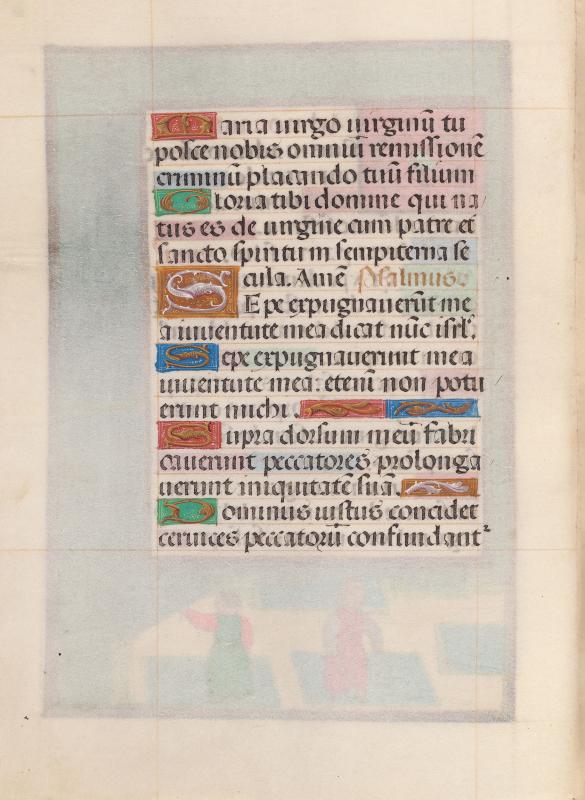 Maria uirgo uirginū tu
posce nobis omniū remissionē
criminū placando tuū filium
Gloria tibi domine qui na
tus es de uirgine cum patre et
sancto spiritu in sempiterna se
cula. Amē Psalmus
SEpe expugnauerūt me
a iuuentute mea dicat nūc isrl'.
Sepe expugnauerunt me a
iuuentute mea: etenī non potu
erunt michi.
Supra dorsum meū fabri
cauerunt peccatores prolonga
uerunt iniquitatē suā.
Dominus iustus concidet
ceruices peccatorū confundant²